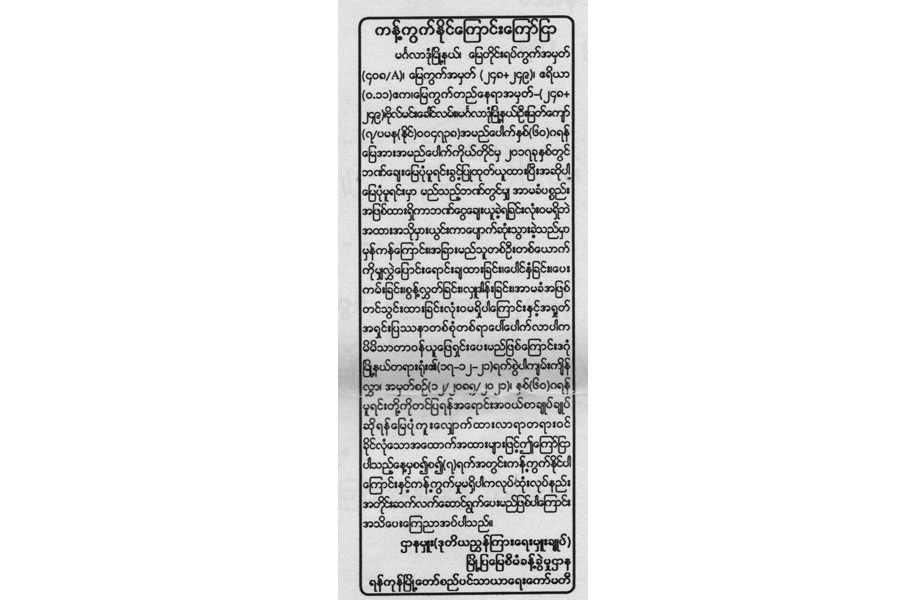 ကန့်ကွက်နိုင်ကြောင်းကြော်ငြာ
မင်္ဂလာဒုံမြို့နယ်၊ မြေတိုင်းရပ်ကွက်အမှတ်
(၄၀၈/A)၊ မြေကွက်အမှတ် (၂၄၈+၂၄၉)၊ ဧရိယာ
(၀.၁၁)ဧက၊မြေကွက်တည်နေရာအမှတ်-(၂၄၈+
၂၄၉)ဗိုလ်မင်းခေါင်လမ်း၊မင်္ဂလာဒုံမြို့နယ်ဦးမြတ်ကျော်
(၇/ပမန(နိုင်)၀၀၄၇၃၈)အမည်ပေါက်နှစ်(၆၀)ဂရန်
မြေအားအမည်ပေါက်ကိုယ်တိုင်မှ ၂၀၁၇ခုနှစ်တွင်
ဘဏ်ချေးမြေပုံမူရင်းခွင့်ပြုထုတ်ယူထားပြီးအဆိုပါ
မြေပုံမူရင်းမှာ မည်သည့်ဘဏ်တွင်မျှ အာမခံပစ္စည်း
အဖြစ်ထားရှိကာဘဏ်ငွေချေးယူခဲ့ရခြင်းလုံးဝမရှိဘဲ
အထားအသိုမှားယွင်းကာပျောက်ဆုံးသွားခဲ့သည်မှာ
မှန်ကန်ကြောင်း၊အခြားမည်သူတစ်ဦးတစ်ယောက်
ကိုမျှလွှဲပြောင်းရောင်းချထားခြင်း၊ပေါင်နှံခြင်း၊ပေး
ကမ်းခြင်း၊စွန့်လွှတ်ခြင်း၊လှူဒါန်းခြင်း၊အာမခံအဖြစ်
တင်သွင်းထားခြင်းလုံးဝမရှိပါကြောင်းနှင့်အရှုတ်
အရှင်းပြဿနာတစ်စုံတစ်ရာပေါ်ပေါက်လာပါက
မိမိသာတာဝန်ယူဖြေရှင်းပေးမည်ဖြစ်ကြောင်းဒဂုံ
မြို့နယ်တရားရုံး၏(၁၇-၁၂-၂၁)ရက်စွဲပါကျမ်းကျိန်
လွှာ၊ အမှတ်စဉ်(၁၂/၂၀၈၅/၂၀၂၁)၊ နှစ်(၆၀)ဂရန်
မူရင်းတို့ကိုတင်ပြရန်အရောင်းအဝယ်စာချုပ်ချုပ်
ဆိုရန်မြေပုံကူးလျှောက်ထားလာရာတရားဝင်
ခိုင်လုံသောအထောက်အထားများဖြင့်ဤကြော်ငြာ
ပါသည့်နေ့မှစ၍စ၍(၇)ရက်အတွင်းကန့်ကွက်နိုင်ပါ
ကြောင်းနှင့်ကန့်ကွက်မှုမရှိပါကလုပ်ထုံးလုပ်နည်း
အတိုင်းဆက်လက်ဆောင်ရွက်ပေးမည်ဖြစ်ပါကြောင်း
အသိပေးကြေညာအပ်ပါသည်။
ဌာနမှူး(ဒုတိယညွှန်ကြားရေးမှူးချုပ်)
မြို့ပြမြေစီမံခန့်ခွဲမှုဌာန
ရန်ကုန်မြို့တော်စည်ပင်သာယာရေးကော်မတီ